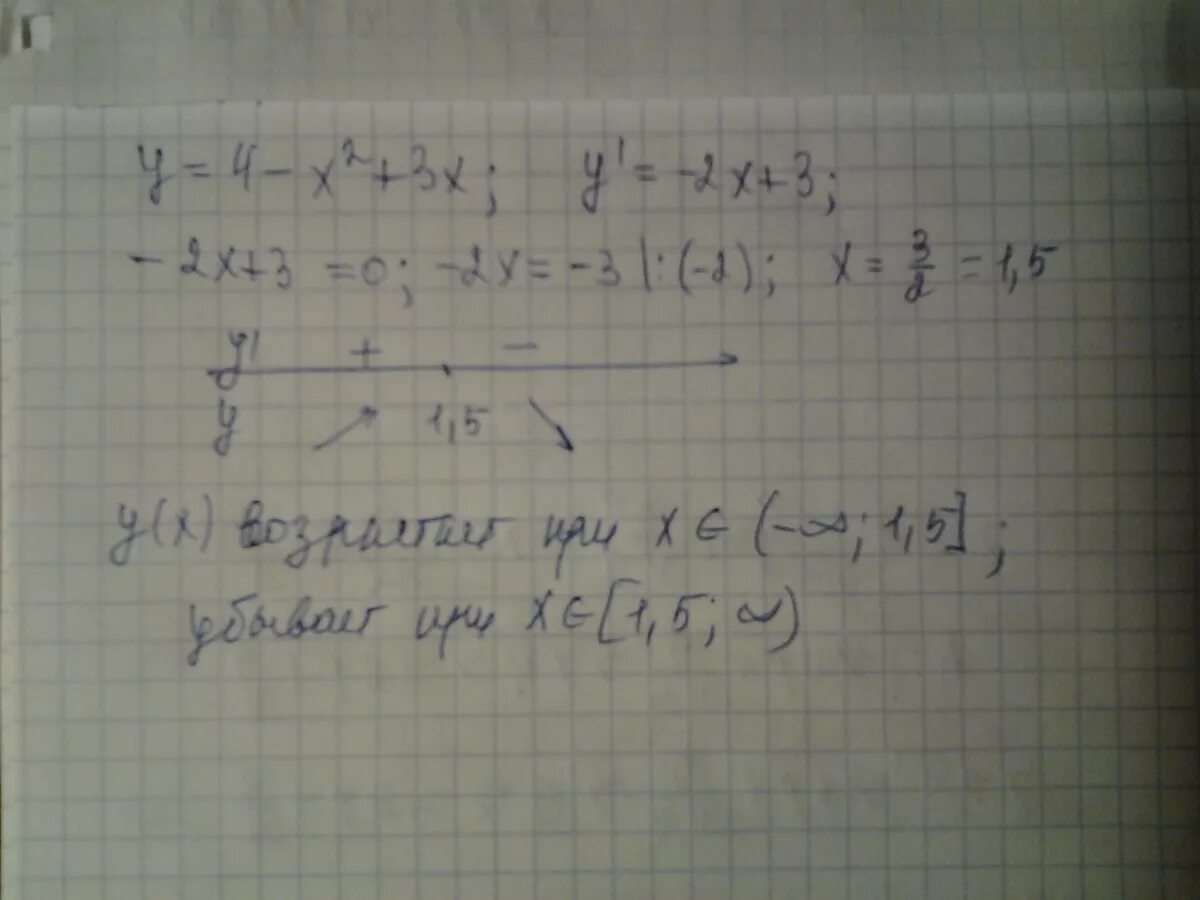 y = 4 - x² + 3x; y' = -2x+3;
-2x+3 = 0; -2x = -3 |:(-2); x = 3/2 = 1,5
y' + -
y ↗ 1,5 ↘
y(x) возрастает при x ∈ (-∞; 1,5];
убывает при x ∈ [1,5; ∞)